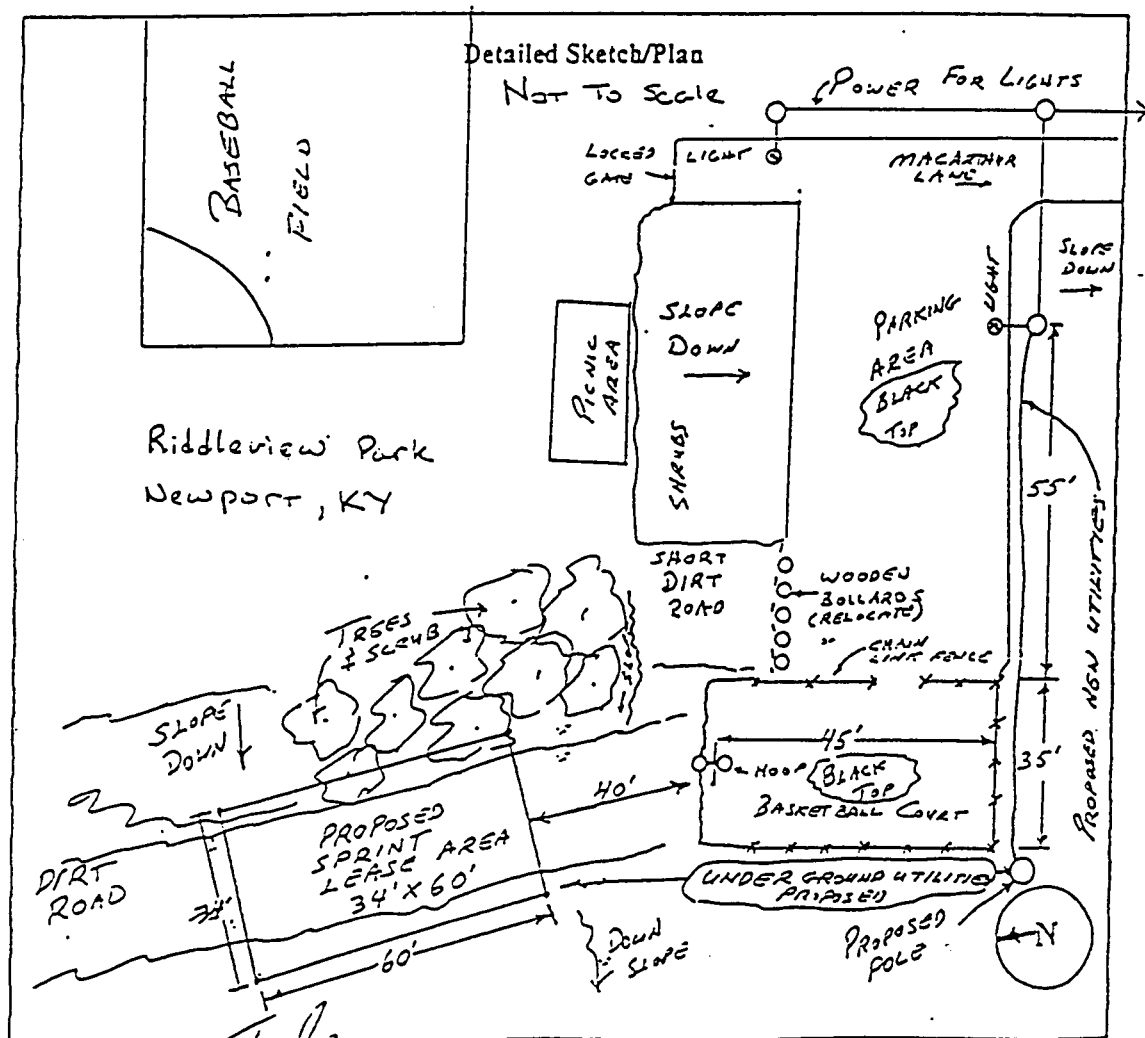 Detailed Sketch/Plan
Not To Scale
POWER FOR LIGHTS
BASEBALL
FIELD
LOCKED
GATE
LIGHT
MACARTHUR
LANE
SLOPE
DOWN
LIGHT
PARKING
AREA
BLACK
TOP
SLOPE
DOWN
PICNIC
AREA
SHRUBS
Riddleview Park
Newport, KY
55'
PROPOSED NEW UTILITIES
SHORT
DIRT
ROAD
WOODEN
BOLLARDS
(RELOCATE)
CHAIN
LINK FENCE
TREES
& SCRUB
SLOPE
SLOPE
DOWN
45'
35'
HOOP
BLACK
TOP
BASKETBALL COURT
40'
PROPOSED
SPRINT
LEASE AREA
34' X 60'
DIRT
ROAD
34'
60'
UNDERGROUND UTILITIES
PROPOSED
DOWN
SLOPE
PROPOSED
POLE
N